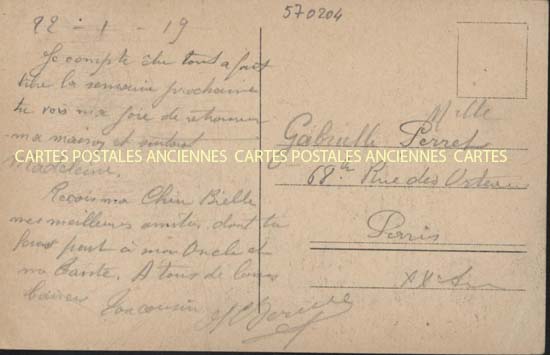 570204
22 - 1 - 19
Je compte être tout à fait
libre la semaine prochaine
tu vois ma joie de retrouver
ma maison et surtout
Madeleine.
Reçois ma Chère Bielle
mes meilleures amitiés dont tu
feras part à mon Oncle et
ma Tante. A tous de bons
baisers Ton cousin
Mlle
Gabrielle Perret
68 Rue des Orteaux
Paris
XXe Arr
CARTES POSTALES ANCIENNES CARTES POSTALES ANCIENNES CARTES